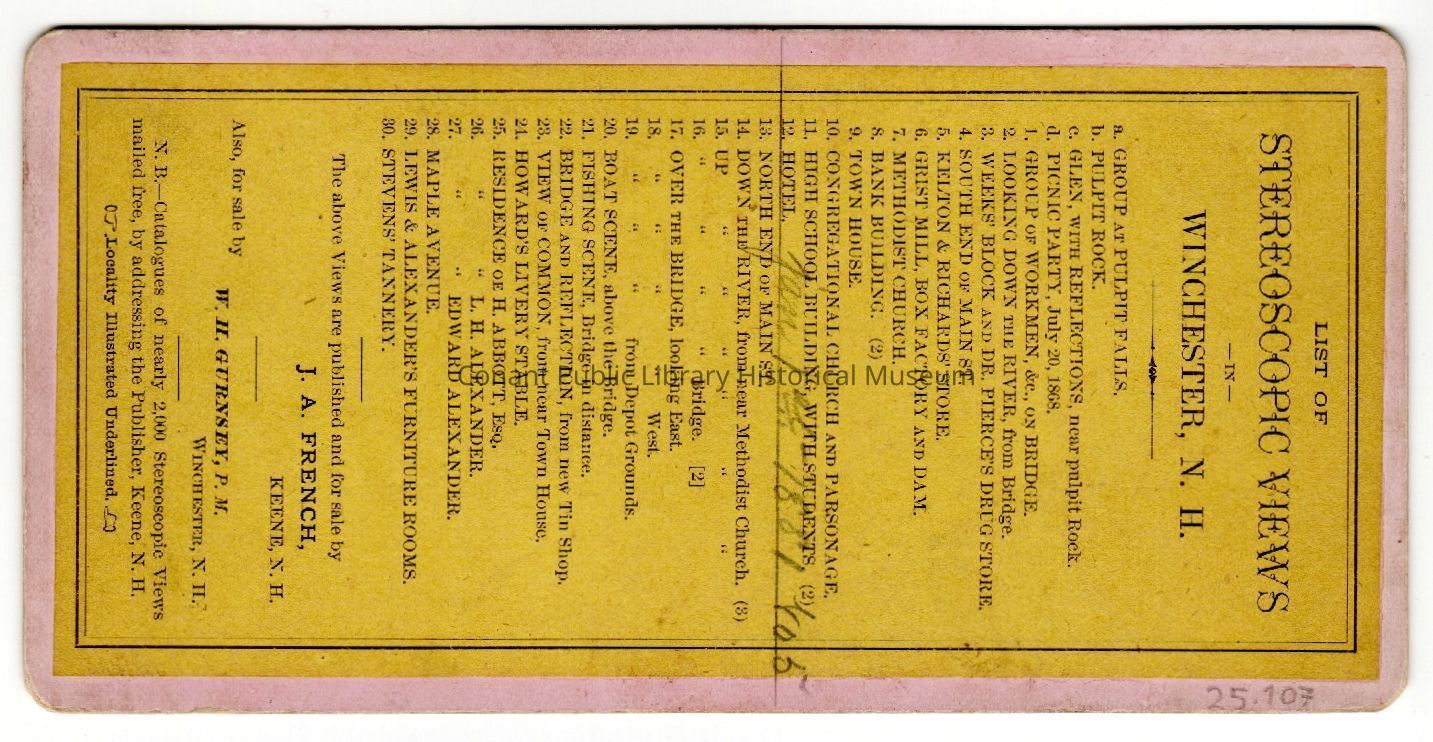 LIST OF
STEREOSCOPIC VIEWS
—IN—
WINCHESTER, N. H.
a. GROUP AT PULPIT FALLS.
b. PULPIT ROCK.
c. GLEN, WITH REFLECTIONS, near pulpit Rock.
d. PICNIC PARTY, July 20, 1868.
1. GROUP OF WORKMEN, &c., ON BRIDGE.
2. LOOKING DOWN THE RIVER, from Bridge.
3. WEEKS' BLOCK AND DR. PIERCE'S DRUG STORE.
4. SOUTH END OF MAIN ST.
5. KELTON & RICHARDS' STORE.
6. GRIST MILL, BOX FACTORY AND DAM.
7. METHODIST CHURCH.
8. BANK BUILDING. (2)
9. TOWN HOUSE.
10. CONGREGATIONAL CHURCH AND PARSONAGE.
11. HIGH SCHOOL BUILDING, WITH STUDENTS. (2)
12. HOTEL.
13. NORTH END OF MAIN ST.
14. DOWN THE RIVER, from near Methodist Church. (3)
15. UP " " " " " "
16. " " " " Bridge. [2]
17. OVER THE BRIDGE, looking East.
18. " " " " West.
19. " " " from Depot Grounds.
20. BOAT SCENE, above the Bridge.
21. FISHING SCENE, Bridge in distance.
22. BRIDGE AND REFLECTION, from new Tin Shop.
23. VIEW OF COMMON, from near Town House.
24. HOWARD'S LIVERY STABLE.
25. RESIDENCE OF H. ABBOT, Esq.
26. " " L. H. ALEXANDER.
27. " " EDWARD ALEXANDER.
28. MAPLE AVENUE.
29. LEWIS & ALEXANDER'S FURNITURE ROOMS.
30. STEVENS' TANNERY.
The above Views are published and for sale by
J. A. FRENCH,
KEENE, N. H.
Also, for sale by
W. H. GURNSEY, P. M.
WINCHESTER, N. H.
N. B.—Catalogues of nearly 2,000 Stereoscopic Views
mailed free, by addressing the Publisher, Keene, N. H.
☞ Locality Illustrated Underlined. ☜
1887
25.107
Conant Public Library Historical Museum